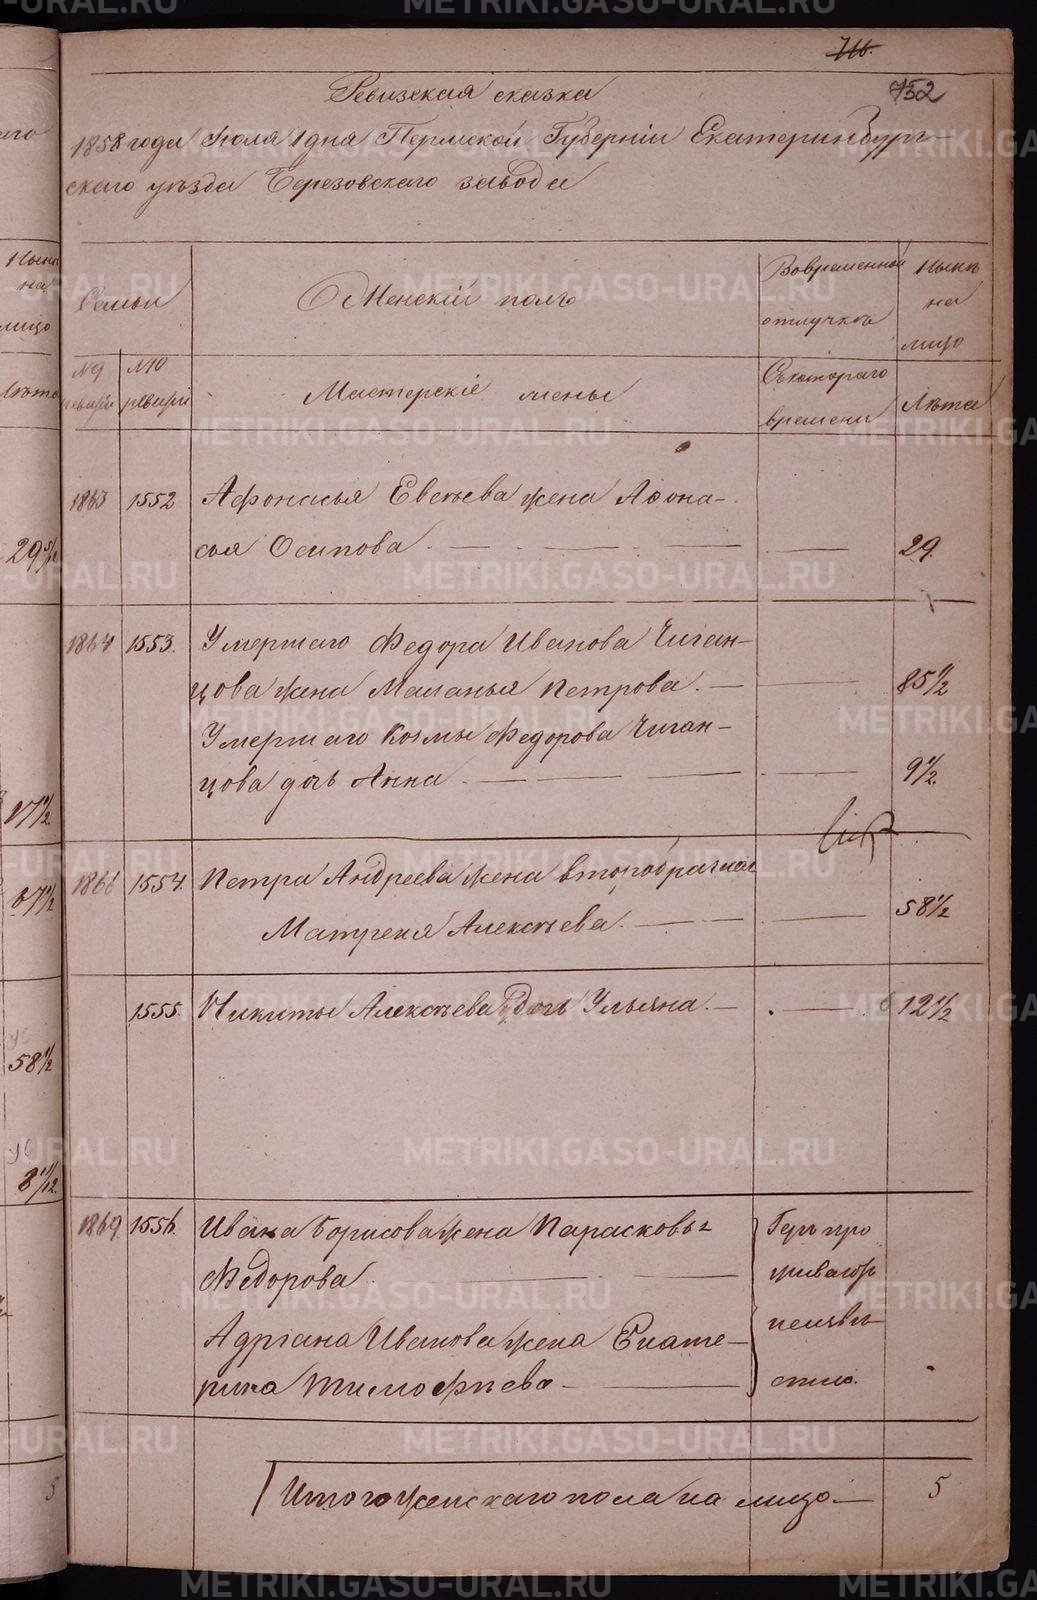 716.
752
Ревизская сказка
1858 года Июля 1 дня Пермской Губерніи Екатеринбург-
скаго уѣзда Березовскаго завода
Нынѣ
на
лицо
Лѣта
Семьи
Женскій полъ
Вовременной
отлучкѣ
Нынѣ
на
лицо
№ 9
ревизіи
№ 10
ревизіи
Мастерскіе жены
Съкотораго
времени
Лѣта
1863 1552 Афонасья Евсѣева жена Афона-
сья Осипова. — — — — 29.
1864 1553. Умершаго Федора Иванова Чиган-
цова жена Маланья Петрова. — — 85 1/2
Умершаго Козмы Федорова Чиган-
цова дочь Анна — — — — 9 1/2.
1866 1554. Петра Андреева жена второбрачная
Матрена Алексѣева. — — — 58 1/2
1555. Никиты Алексѣева дочь Ульяна. — — 12 1/2
1869. 1556. Ивана Борисова жена Парасковья
Федорова — —
Адріана Ивановa жена Екате-
рина Тимофѣева — —
Гдѣ про
живаютъ
неизвѣ-
стно.
Итого женскаго пола на лицо — 5
29 5/12
17 1/2.
67 1/2
58 1/2
8 1/12
5
METRIKI.GASO-URAL.RU